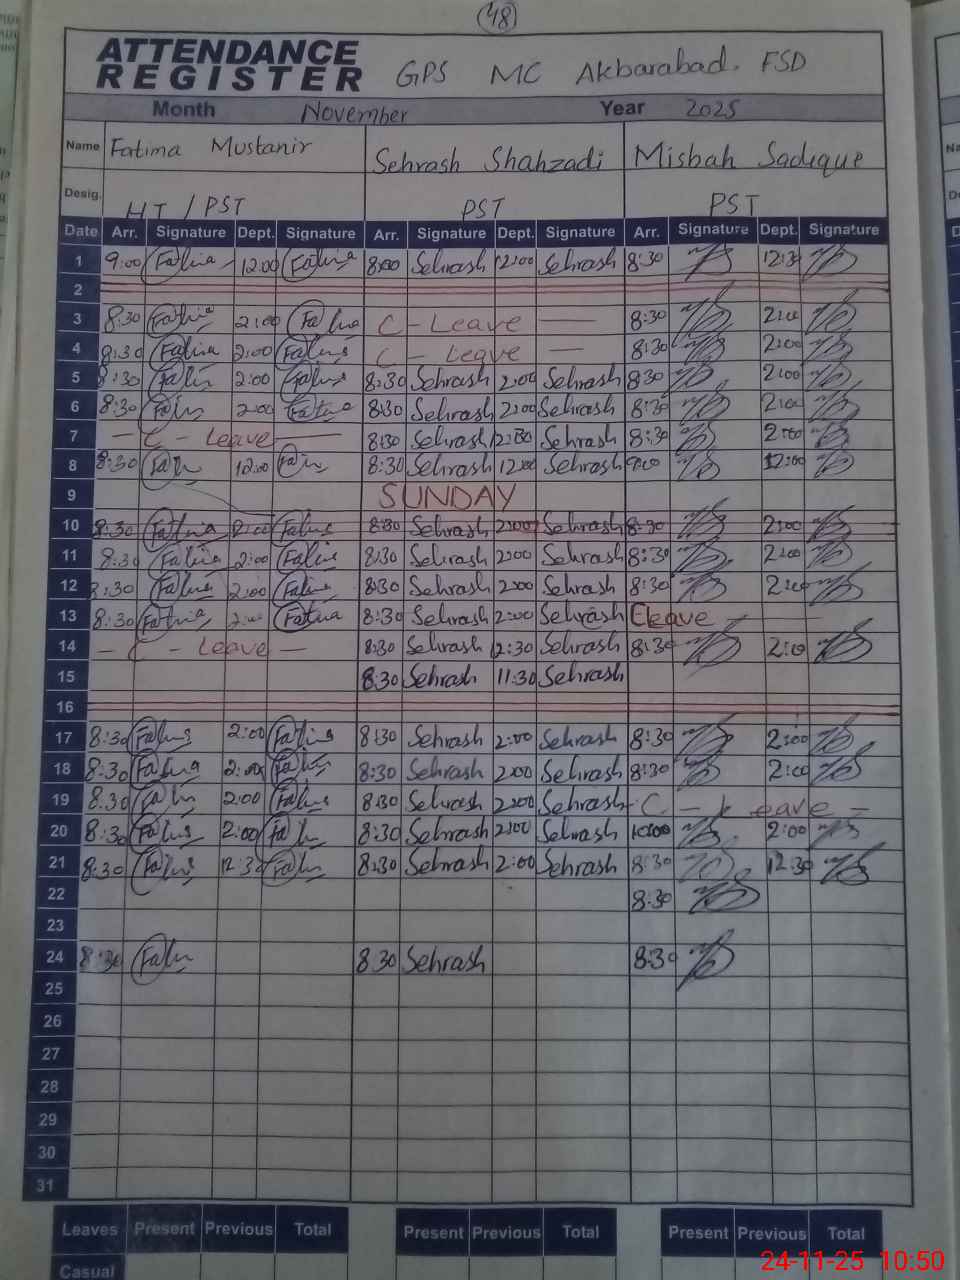 48
ATTENDANCE
REGISTER GPS MC Akbarabad. FSD
Month November Year 2025
Name Fatima Mustanir Sehrash Shahzadi Misbah Sadique
Desig. HT / PST PST PST
Date Arr. Signature Dept. Signature Arr. Signature Dept. Signature Arr. Signature Dept. Signature
1 9:00 Fatima 12:00 Fatima 8:00 Sehrash 12:00 Sehrash 8:30 12:30
2
3 8:30 Fatima 2:00 Fatima C - Leave 8:30 2:00
4 8:30 Fatima 2:00 Fatima C - Leave 8:30 2:00
5 8:30 Fatima 2:00 Fatima 8:30 Sehrash 2:00 Sehrash 8:30 2:00
6 8:30 2:00 Fatima 8:30 Sehrash 2:00 Sehrash 8:30 2:00
7 - C - Leave 8:30 Sehrash 12:30 Sehrash 8:30 2:00
8 8:30 12:00 8:30 Sehrash 12:00 Sehrash 9:00 12:00
9 SUNDAY
10 8:30 Fatima 2:00 Fatima 8:30 Sehrash 2:00 Sehrash 8:30 2:00
11 8:30 Fatima 2:00 Fatima 8:30 Sehrash 2:00 Sehrash 8:30 2:00
12 8:30 Fatima 2:00 Fatima 8:30 Sehrash 2:00 Sehrash 8:30 2:00
13 8:30 Fatima 2:00 Fatima 8:30 Sehrash 2:00 Sehrash C leave
14 - C - Leave - 8:30 Sehrash 12:30 Sehrash 8:30 2:00
15 8:30 Sehrash 11:30 Sehrash
16
17 8:30 Fatima 2:00 Fatima 8:30 Sehrash 2:00 Sehrash 8:30 2:00
18 8:30 Fatima 2:00 Fatima 8:30 Sehrash 2:00 Sehrash 8:30 2:00
19 8:30 2:00 Fatima 8:30 Sehrash 2:00 Sehrash - C - Leave -
20 8:30 Fatima 2:00 8:30 Sehrash 2:00 Sehrash 10:00 2:00
21 8:30 Fatima 12:30 8:30 Sehrash 2:00 Sehrash 8:30 12:30
22 8:30
23
24 8:30 8:30 Sehrash 8:30
25
26
27
28
29
30
31
Leaves Present Previous Total Present Previous Total Present Previous Total
Casual
24-11-25 10:50